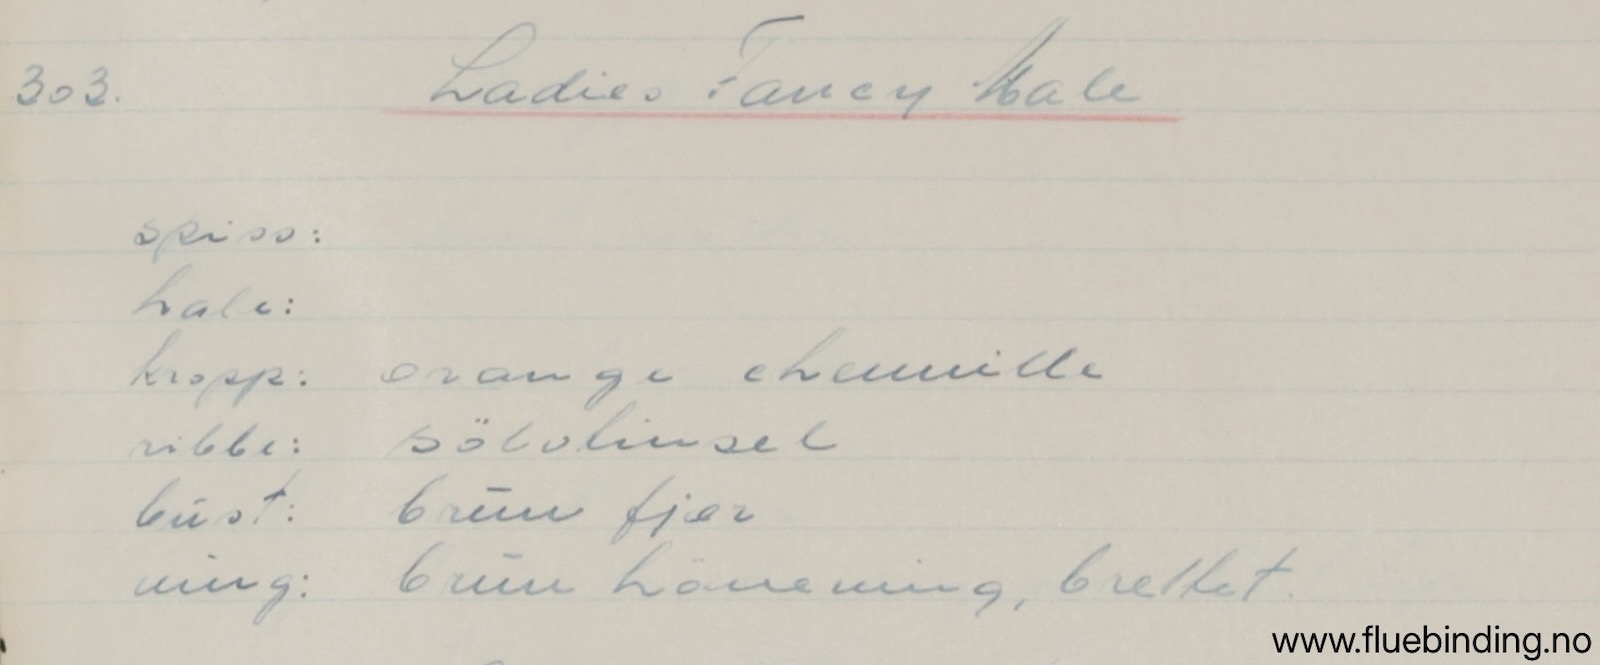 303. Ladies Fancy Male
spiss:
hale:
kropp: orange chenille
ribbe: sölvtinsel
bust: brun fjær
ving: brun höneving, brettet.
www.fluebinding.no